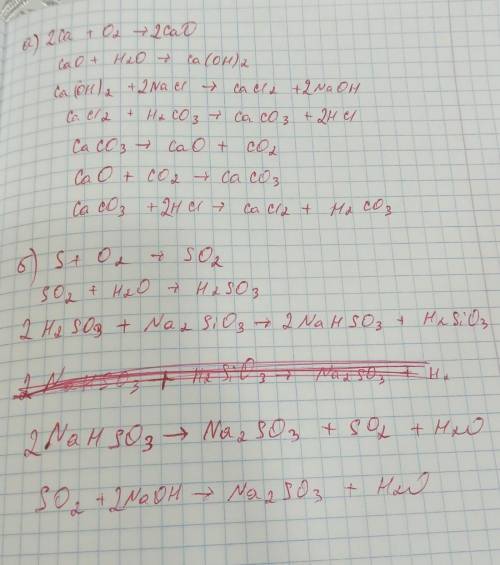 а) 2Ca + O2 → 2CaO
CaO + H2O → Ca(OH)2
Ca(OH)2 + 2NaCl → CaCl2 + 2NaOH
CaCl2 + H2CO3 → CaCO3 + 2HCl
CaCO3 → CaO + CO2
CaO + CO2 → CaCO3
CaCO3 + 2HCl → CaCl2 + H2CO3
б) S + O2 → SO2
SO2 + H2O → H2SO3
2H2SO3 + Na2SiO3 → 2NaHSO3 + H2SiO3
2NaHSO3 + H2SiO3 → Na2SO3 + H2
2NaHSO3 → Na2SO3 + SO2 + H2O
SO2 + 2NaOH → Na2SO3 + H2O